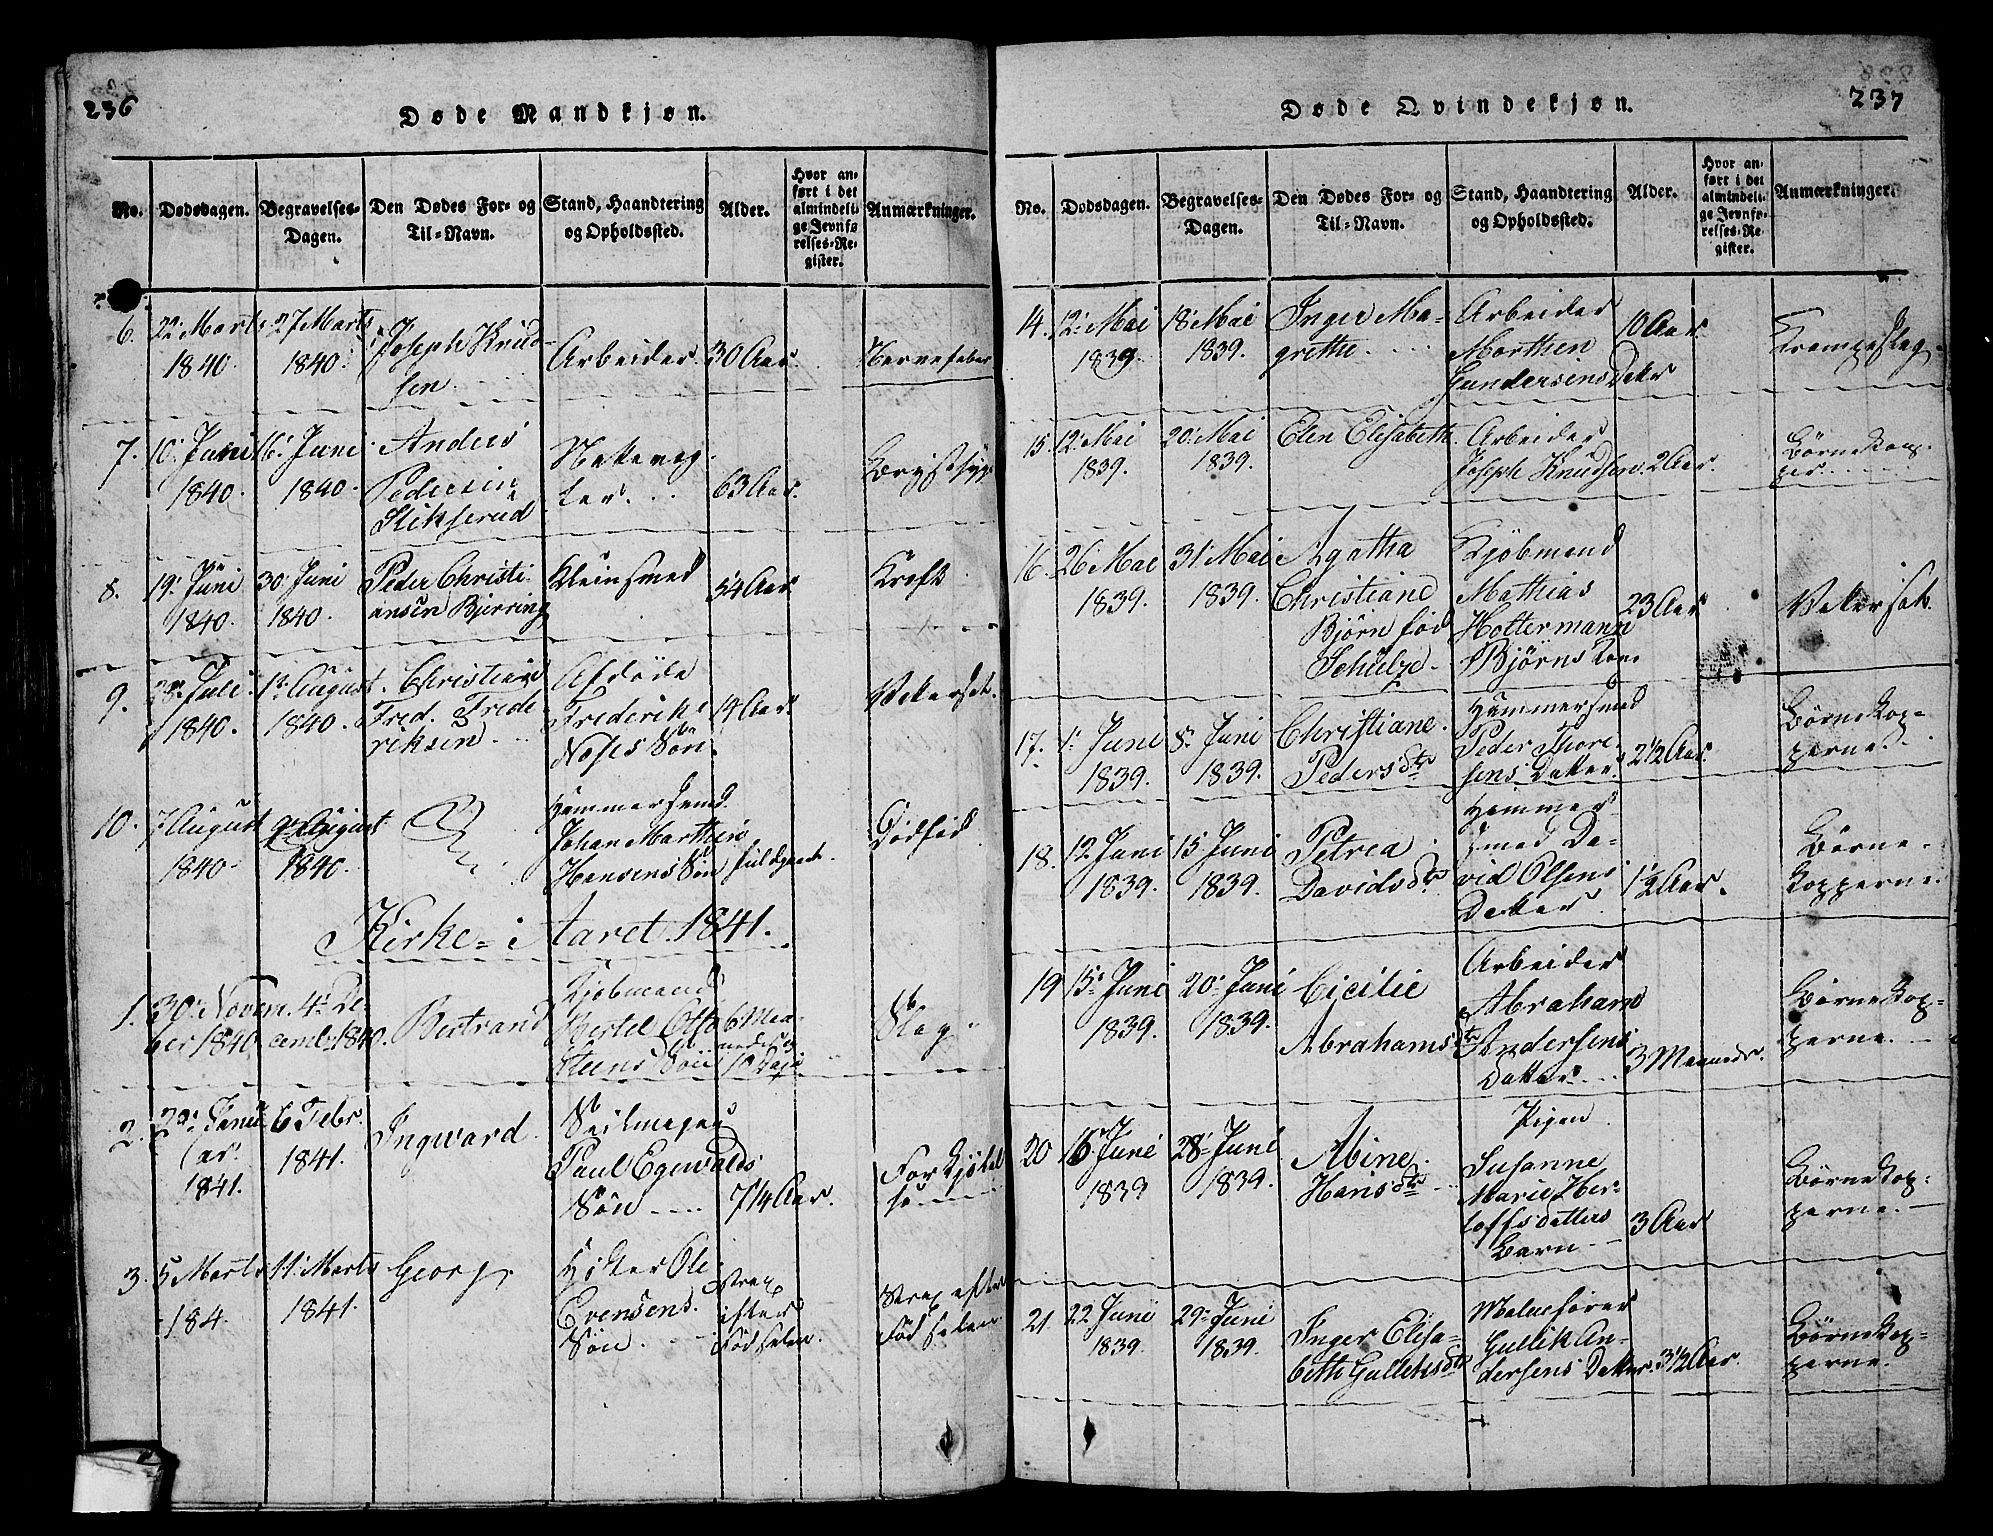 236
Døde Mandkjøn.
No.
Dødsdagen.
Begravelses-
Dagen.
Den Dødes For- og
Til-Navn.
Stand, Haandtering
og Opholdssted.
Alder.
Hvor an-
ført i det
almindeli-
ge Jevnfø-
relses-Re-
gister.
Anmærkninger.
6.
22 Marts
1840.
27 Marts
1840.
Joseph Knud-
sen
Arbeider.
30 Aar.
Nervefeber
7.
10. Juni
1840.
16. Juni
1840.
Anders
Pedersen
Slikserud
63 Aar.
Brystsyge
8.
19. Juni
1840.
30. Juni
1840.
Peder Christi-
ansen Bjerring
Kleinsmed
54 Aar
Kræft
9.
28. Juli
1840.
1. August
1840.
Christian
Fred. Frede-
riksen
Afdøde
Frederik
Søn.
14 Aar.
10.
7 August
1840.
9. August
1840.
Hammersmed
Johan Marthin
Hansens Søn
fuldbaaren
Dødfød
Kirke-Aaret. 1841.
1.
30. Novem-
ber 1840
4. De-
cemb. 1840.
Bertrand
Kjøbmand
Bertel Otto
Steens Søn
6 Maa-
neder og
10 Dage
Slag
2.
Janu-
ar
1841.
6 Febr.
1841.
Ingward
Seilmager
Paul Egewalds
Søn
7 1/4 Aar.
Forkjølel-
se
3.
5 Marts
184.
11. Marts
1841.
Georg
Ole
Evensens
Søn
Strax
efter
Fødselen.
Strax efter
Fødselen
237
Døde Qvindekjøn.
No.
Dødsdagen.
Begravelses-
Dagen.
Den Dødes For- og
Til-Navn.
Stand, Haandtering
og Opholdssted.
Alder.
Hvor an-
ført i det
almindeli-
ge Jevnfø-
relses-Re-
gister.
Anmærkninger.
14.
12. Mai
1839.
18. Mai
1839.
Inger Ma-
grethe
Arbeider
Morthen
Gundersens Datter
10 Aar
Krampeslag
15.
12. Mai
1839.
20. Mai
1839.
Elen Elisabeth
Arbeider
Joseph Knudsen
2 Aar.
Børnekop-
per
16.
26. Mai
1839.
31. Mai
1839.
Agatha
Christiane
Bjørn fød
Schulze
Kjøbmand
Mathias
Holtermann
Bjørns Kone
23 Aar
17.
1. Juni
1839.
8. Juni
1839.
Christiane
Pedersdtr
Hammersmed
Peder Thore-
sens Datter
2 1/2 Aar
Børnekop-
perne
18.
12 Juni
1839.
15. Juni
1839.
Petrea
Davidsdtr
Hammer-
smed Da-
vid Olsens
Datter
1 1/2 Aar.
Børne-
kopperne
19
15. Juni
1839.
20. Juni
1839.
Cicilie
Abrahamsdtr
Arbeider
Abraham
Andersens
Datter
3 Maaneder.
Børnekop-
perne
20
16. Juni
1839
28. Juni
1839.
Abine
Hansdtr
Pigen
Susanne
Marie Her-
loffsdatters
Barn
3 Aar
Børnekop-
perne
21
22 Juni
1839.
29. Juni
1839.
Inger Elisa-
beth Gulleksdtr
Gullik An-
dersens Datter
3 1/2 Aar.
Børnekop-
perne